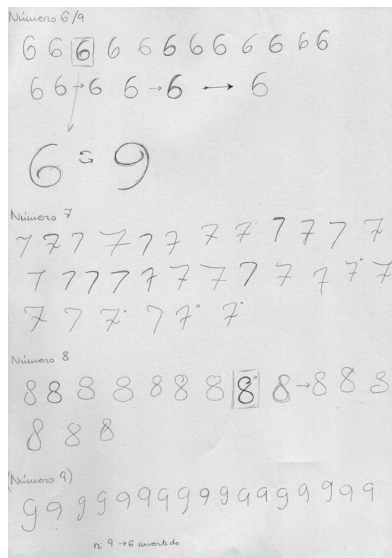 Número 6/9
6 6 6 6 6 6 6 6 6 6 6 6
6 6 → 6 6 → 6 → 6
6 = 9
Número 7
7 7 7 7 7 7 7 7 7 7 7 7
7 7 7 7 7 7 7 7 7 7 7 7
7 7 7 7 7 7
Número 8
8 8 8 8 8 8 8 8 8 → 8 8 8
8 8 8
(Número 9)
9 9 9 9 9 9 9 9 9 9 9 9 9 9 9 9 9 9
nº 9 → 6 invertido